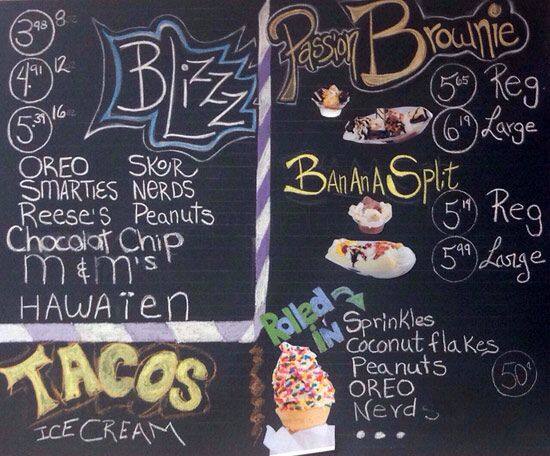 3.98 8oz
4.91 12oz
5.31 16oz
Blizzz
OREO Skor
SMARTIES NERDS
Reese's Peanuts
Chocolat Chip
m & m's
HAWAïen
TACOS
ICE CREAM
Passion Brownie
5.65 Reg
6.19 Large
BanAnA Split
5.19 Reg
5.99 Large
Rolled in
Sprinkles
Coconut flakes
Peanuts
OREO
Nerds
...
50¢